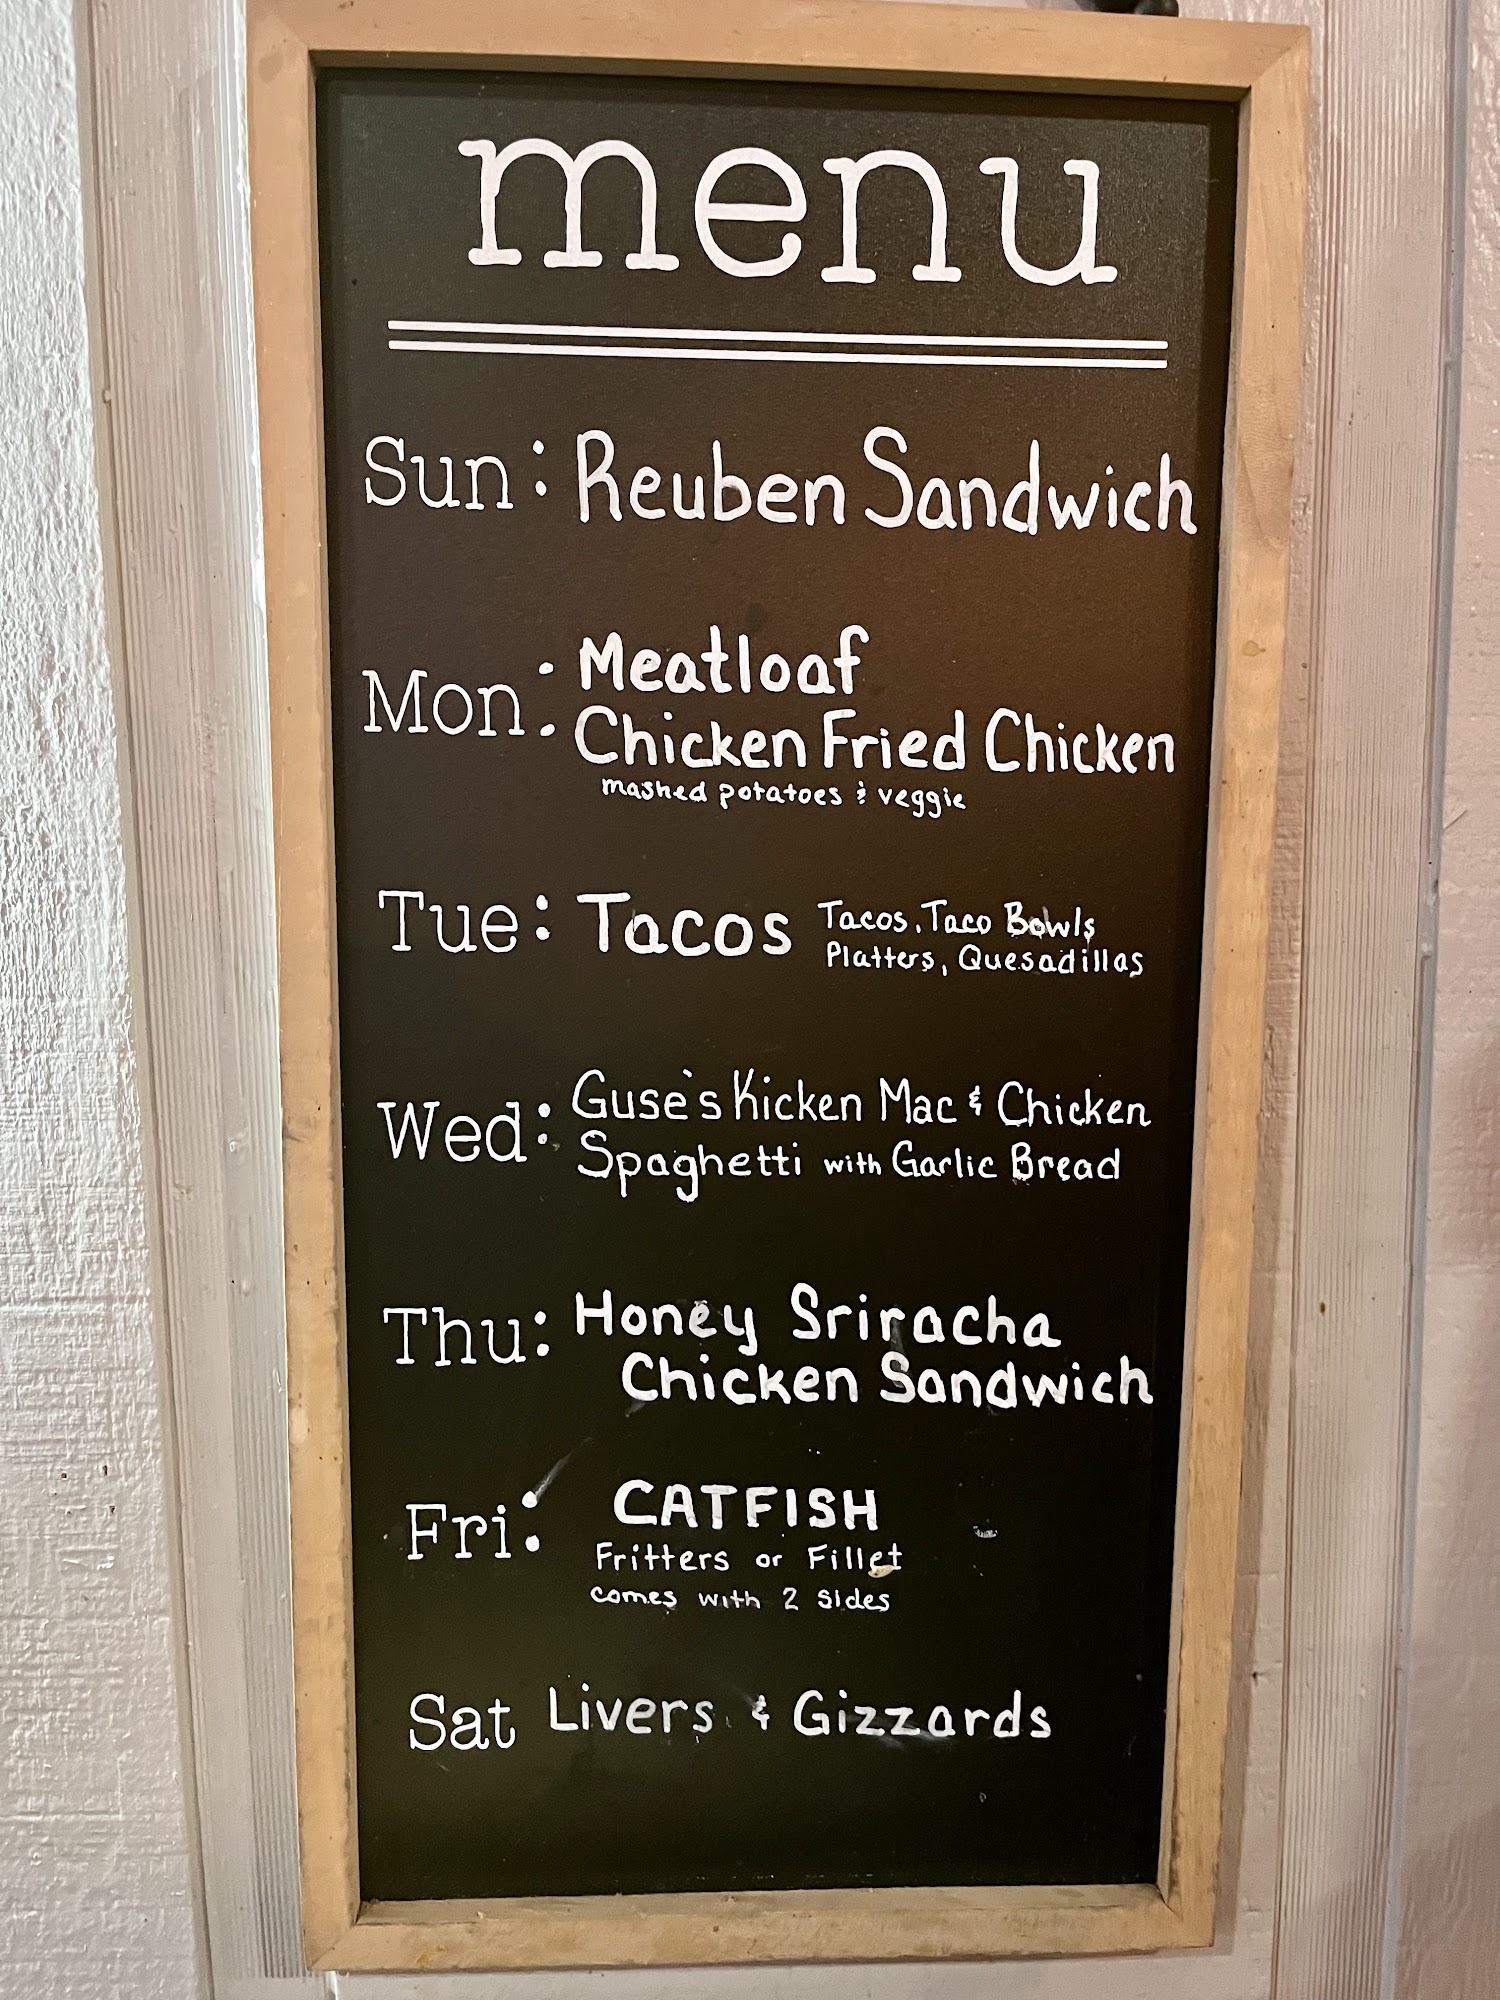 menu
Sun: Reuben Sandwich
Mon: Meatloaf
Chicken Fried Chicken
mashed potatoes & veggie
Tue: Tacos Tacos, Taco Bowls
Platters, Quesadillas
Wed: Guse's Kicken Mac & Chicken
Spaghetti with Garlic Bread
Thu: Honey Sriracha
Chicken Sandwich
Fri: CATFISH
Fritters or Fillet
comes with 2 sides
Sat Livers & Gizzards